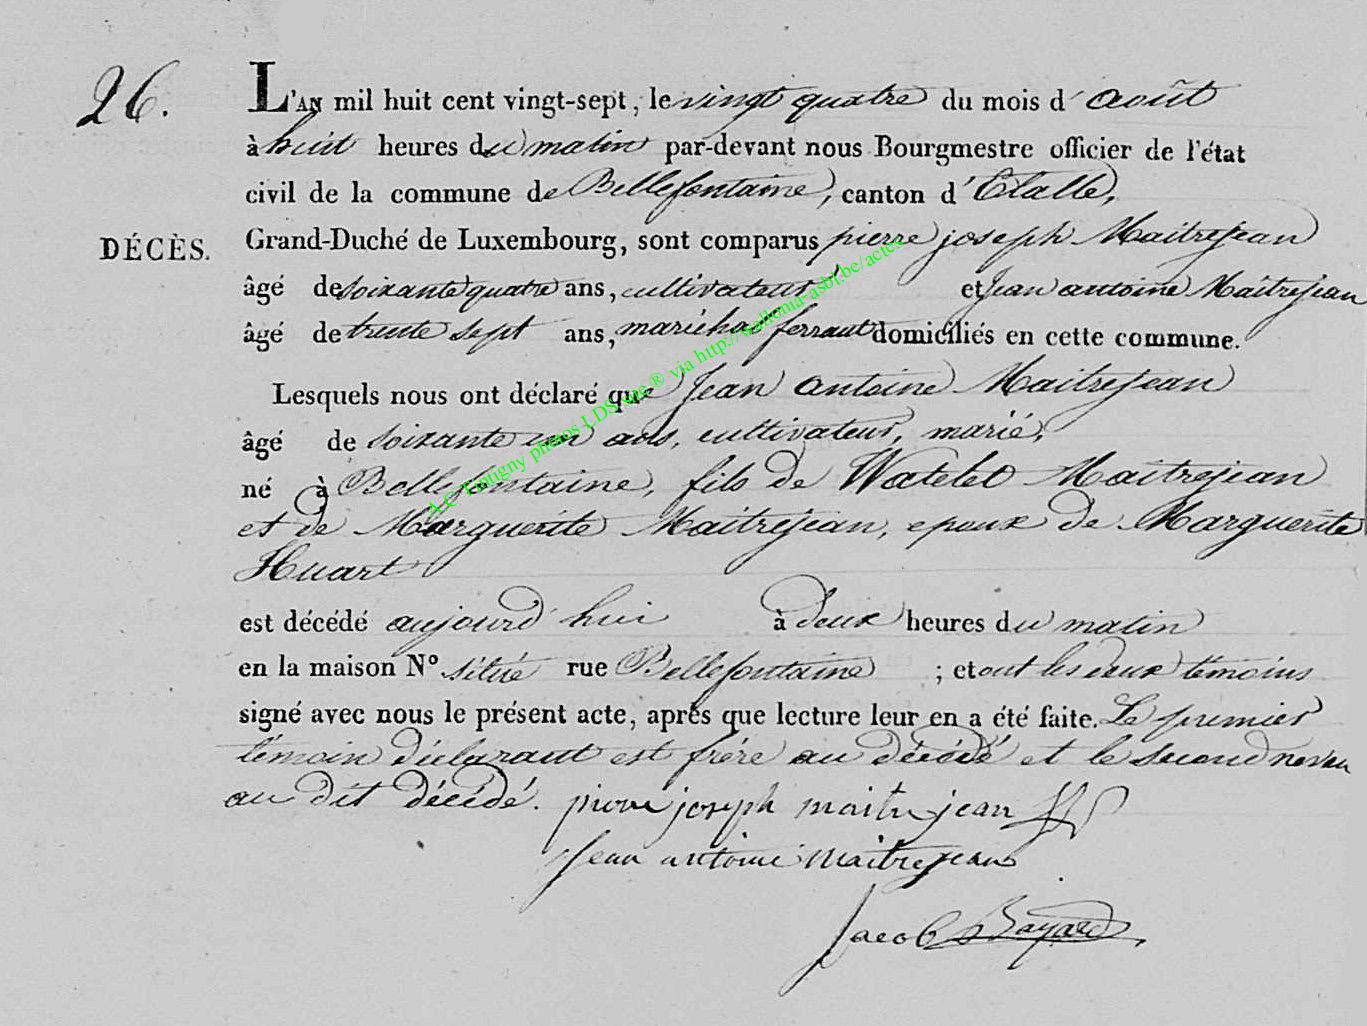 26.
L'AN mil huit cent vingt-sept, le vingt quatre du mois d'août
à huit heures du matin par-devant nous Bourgmestre officier de l'état
civil de la commune de Bellefontaine, canton d'Etalle,
DÉCÈS.
Grand-Duché de Luxembourg, sont comparus pierre joseph Maitrejean
âgé de soixante quatre ans, cultivateur et Jean antoine Maitrejean
âgé de trente sept ans, maréchal ferraut domiciliés en cette commune.
Lesquels nous ont déclaré que Jean antoine Maitrejean
âgé de soixante un ans, cultivateur, marié,
né à Bellefontaine, fils de Watelet Maitrejean
et de Marguerite Maitrejean, epoux de Marguerite
Huart
est décédé aujourd'hui à deux heures du matin
en la maison N° sitúé rue Bellefontaine ; et ont les deux témoins
signé avec nous le présent acte, après que lecture leur en a été faite. Le premier
témoin déclarant est frère au décédé et le second neveu
au dit décédé. pierre joseph maitrejean
Jean antoine Maitrejean
Jacob Bayard
A.C. Tintigny photos LDS via http://wallonia-asbl.be/actes